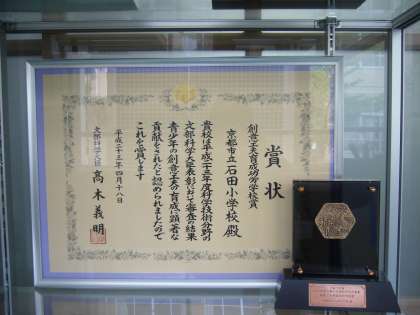 賞状
創意工夫育成功労学校賞
京都市立石田小学校 殿
貴校は平成二十三年度科学技術分野の
文部科学大臣表彰において審査の結果
青少年の創意工夫の育成に顕著な
貢献をされたと認められましたので
これを賞します
平成二十三年四月十八日
文部科学大臣 高木義明